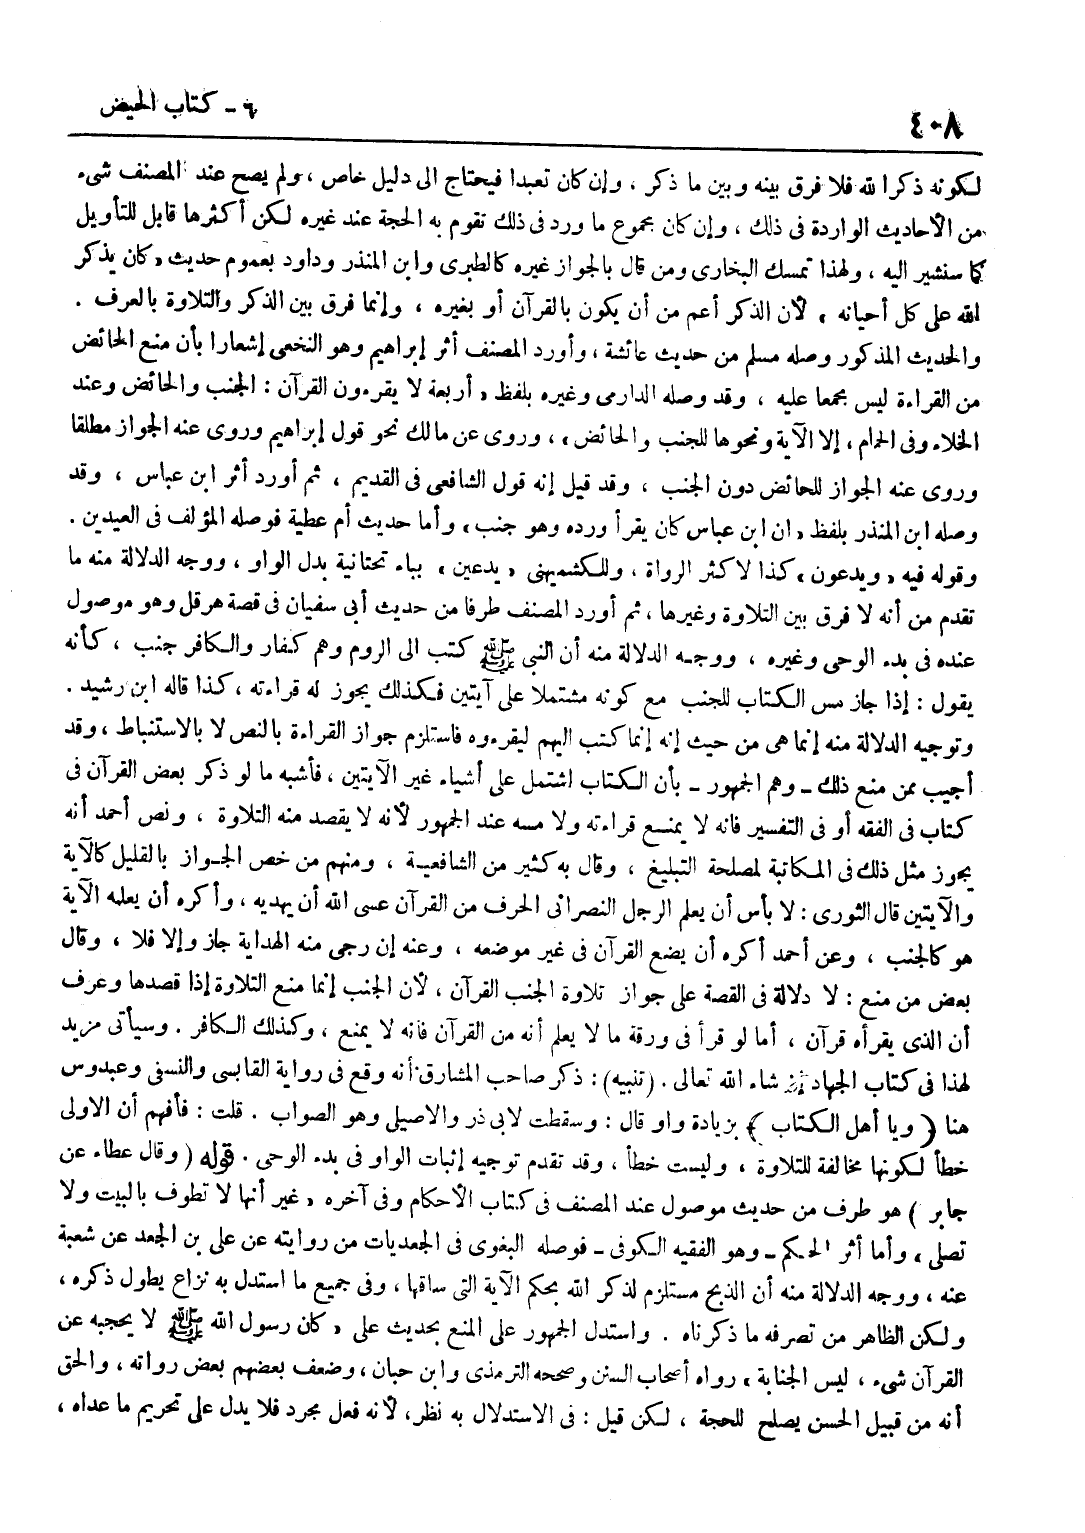 ٤٠٨
٦ - كتاب الحيض
لكونه ذكرا لله فلا فرق بينه وبين ما ذكر ، وإن كان تعبدا فيحتاج الى دليل خاص ، ولم يصح عند المصنف شىء
من الأحاديث الواردة فى ذلك ، وإن كان مجموع ما ورد فى ذلك تقوم به الحجة عند غيره لكن أكثرها قابل للتأويل
كما سنشير اليه ، ولهذا تمسك البخارى ومن قال بالجواز غيره كالطبرى وابن المنذر وداود بعموم حديث « كان يذكر
الله على كل أحيانه » لأن الذكر أعم من أن يكون بالقرآن أو بغيره ، وإنما فرق بين الذكر والتلاوة بالعرف .
والحديث المذكور وصله مسلم من حديث عائشة ، وأورد المصنف أثر إبراهيم وهو النخعى إشعارا بأن منع الحائض
من القراءة ليس مجمعا عليه ، وقد وصله الدارمى وغيره بلفظ « أربعة لا يقرءون القرآن : الجنب والحائض وعند
الخلاء وفى الحمام ، إلا الآية ونحوها للجنب والحائض » ، وروى عن مالك نحو قول إبراهيم وروى عنه الجواز مطلقا
وروى عنه الجواز للحائض دون الجنب ، وقد قيل إنه قول الشافعى فى القديم ، ثم أورد أثر ابن عباس ، وقد
وصله ابن المنذر بلفظ « ان ابن عباس كان يقرأ ورده وهو جنب » وأما حديث أم عطية فوصله المؤلف فى العيدين .
وقوله فيه « ويدعون » كذا لاكثر الرواة ، وللكشميهنى « يدعين » بياء تحتانية بدل الواو ، ووجه الدلالة منه ما
تقدم من أنه لا فرق بين التلاوة وغيرها ، ثم أورد المصنف طرفا من حديث أبى سفيان فى قصة هرقل وهو موصول
عنده فى بدء الوحى وغيره ، ووجه الدلالة منه أن النبى ﷺ كتب الى الروم وهم كفار والكافر جنب ، كأنه
يقول : إذا جاز مس الكتاب للجنب مع كونه مشتملا على آيتين فكذلك يجوز له قراءته ، كذا قاله ابن رشيد .
وتوجيه الدلالة منه إنما هى من حيث إنه إنما كتب اليهم ليقرءوه فاستلزم جواز القراءة بالنص لا بالاستنباط ، وقد
أجيب ممن منع ذلك - وهم الجمهور - بأن الكتاب اشتمل على أشياء غير الآيتين ، فأشبه ما لو ذكر بعض القرآن فى
كتاب فى الفقه أو فى التفسير فانه لا يمنع قراءته ولا مسه عند الجمهور لأنه لا يقصد منه التلاوة ، ونص أحمد أنه
يجوز مثل ذلك فى المكاتبة لمصلحة التبليغ ، وقال به كثير من الشافعية ، ومنهم من خص الجواز بالقليل كالآية
والآيتين قال الثورى : لا بأس أن يعلم الرجل النصرانى الحرف من القرآن عسى الله أن يهديه ، وأكره أن يعلمه الآية
هو كالجنب ، وعن أحمد أكره أن يضع القرآن فى غير موضعه ، وعنه إن رجى منه الهداية جاز وإلا فلا ، وقال
بعض من منع : لا دلالة فى القصة على جواز تلاوة الجنب القرآن ، لأن الجنب إنما منع التلاوة إذا قصدها وعرف
أن الذى يقرأه قرآن ، أما لو قرأ فى ورقة ما لا يعلم أنه من القرآن فانه لا يمنع ، وكذلك الكافر . وسيأتى مزيد
لهذا فى كتاب الجهاد إن شاء الله تعالى . ( تنبيه ) : ذكر صاحب المشارق أنه وقع فى رواية القابسى والنسفى وعبدوس
هنا ﴿ ويا أهل الكتاب ﴾ بزيادة واو قال : وسقطت لابى ذر والاصيلى وهو الصواب . قلت : فأفهم أن الاولى
خطأ لكونها مخالفة للتلاوة ، وليست خطأ ، وقد تقدم توجيه إثبات الواو فى بدء الوحى . قوله ( وقال عطاء عن
جابر ) هو طرف من حديث موصول عند المصنف فى كتاب الأحكام وفى آخره « غير أنها لا تطوف بالبيت ولا
تصلى » وأما أثر الحكم - وهو الفقيه الكوفى - فوصله البغوى فى الجعديات من روايته عن على بن الجعد عن شعبة
عنه ، ووجه الدلالة منه أن الذبح مستلزم لذكر الله بحكم الآية التى ساقها ، وفى جميع ما استدل به نزاع يطول ذكره ،
ولكن الظاهر من تصرفه ما ذكرناه . واستدل الجمهور على المنع بحديث على « كان رسول الله ﷺ لا يحجبه عن
القرآن شىء ، ليس الجنابة » رواه أصحاب السنن وصححه الترمذى وابن حبان ، وضعف بعضهم بعض رواته ، والحق
أنه من قبيل الحسن يصلح للحجة ، لكن قيل : فى الاستدلال به نظر ، لأنه فعل مجرد فلا يدل على تحريم ما عداه ،